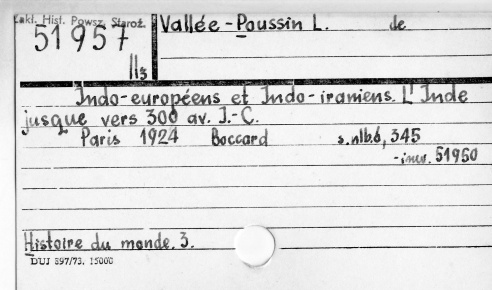 Zakł. Hist. Powsz. Staroż.
51957
II3
Vallée-Poussin L. de
Indo-européens et Indo-iraniens. L'Inde
jusque vers 300 av. J.-C.
Paris 1924 Boccard s. nlb. 6, 345
- inw. 51950
Histoire du monde. 3.
DUJ 897/73. 15000